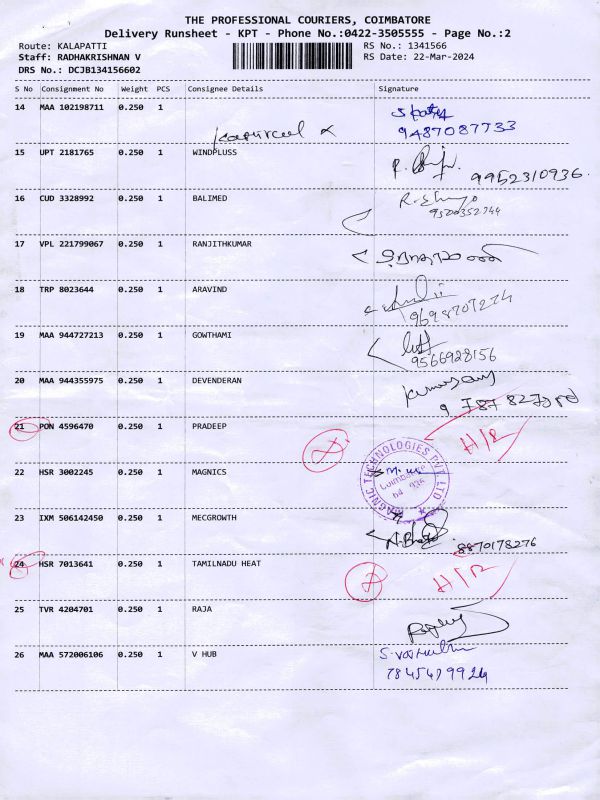 THE PROFESSIONAL COURIERS, COIMBATORE
Delivery Runsheet - KPT - Phone No.:0422-3505555 - Page No.:2
Route: KALAPATTI RS No.: 1341566
Staff: RADHAKRISHNAN V RS Date: 22-Mar-2024
DRS No.: DCJB134156602
S No Consignment No Weight PCS Consignee Details Signature
14 MAA 102198711 0.250 1
9487087733
15 UPT 2181765 0.250 1 WINDPLUSS
9952310936.
16 CUD 3328992 0.250 1 BALIMED
9500352744
17 VPL 221799067 0.250 1 RANJITHKUMAR
18 TRP 8023644 0.250 1 ARAVIND
9698707274
19 MAA 944727213 0.250 1 GOWTHAMI
9566928156
20 MAA 944355975 0.250 1 DEVENDERAN
21 PON 4596470 0.250 1 PRADEEP H/R
22 HSR 3002245 0.250 1 MAGNICS
MAGNIC TECHNOLOGIES PVT. LTD
23 IXM 506142450 0.250 1 MECGROWTH
8870178276
24 HSR 7013641 0.250 1 TAMILNADU HEAT H/R
25 TVR 4204701 0.250 1 RAJA
26 MAA 572006106 0.250 1 V HUB